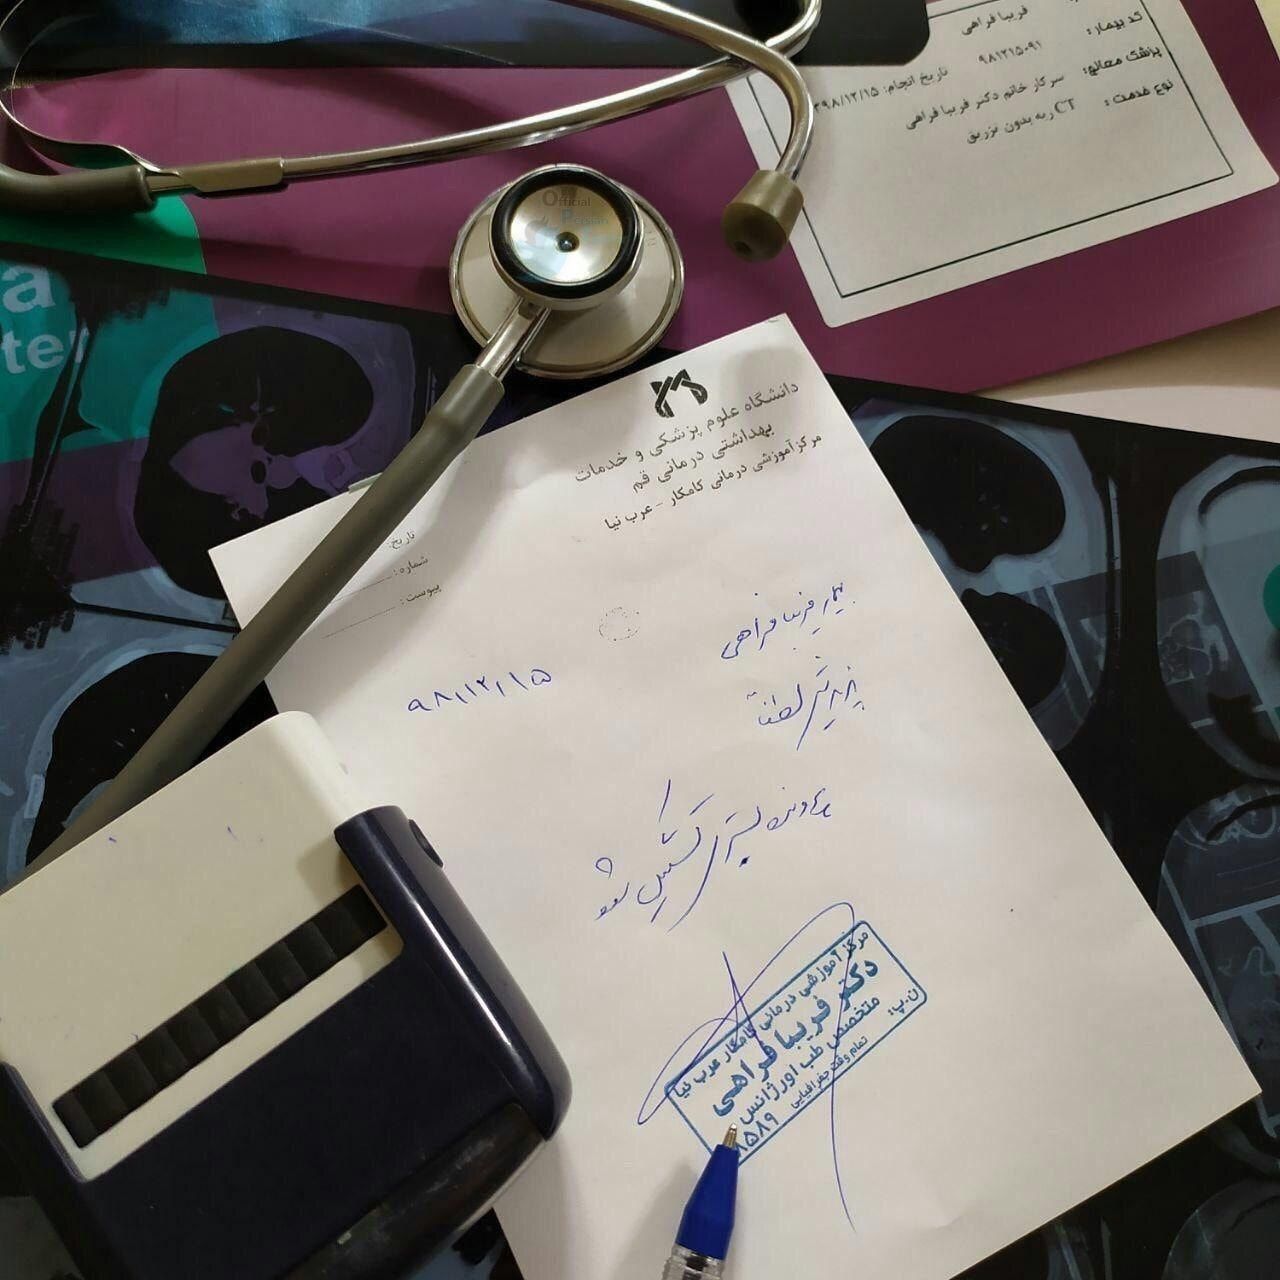 فریبا فراهی
کد بیمار:
۹۸۱۲۱۵-۹۱
تاریخ انجام: ۳۹۸/۱۲/۱۵
پزشک معالج: سرکار خانم دکتر فریبا فراهی
نوع خدمت: CT ریه بدون تزریق
Official
Persian
a
ter
دانشگاه علوم پزشکی و خدمات
بهداشتی درمانی قم
مرکز آموزشی درمانی کامکار - عرب نیا
تاریخ:
شماره:
پیوست:
بیمار فریبا فراهی
۹۸/۱۲/۱۵
پذیرش لطفا
پرونده بستری تشکیل شود
مرکز آموزشی درمانی کامکار عرب نیا
دکتر فریبا فراهی
متخصص طب اورژانس
تمام وقت جغرافیایی
ن.پ:
۸۵۸۹